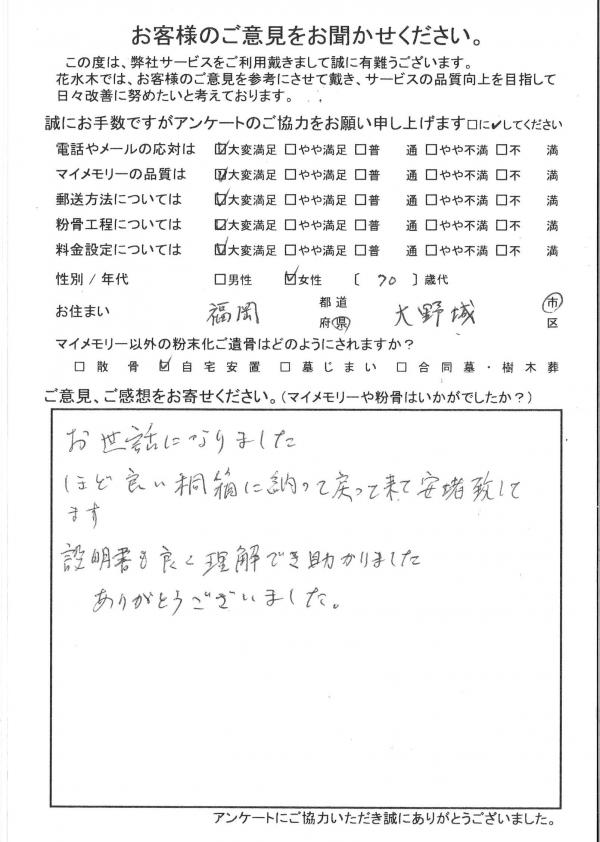 お客様のご意見をお聞かせください。
この度は、弊社サービスをご利用戴きまして誠に有難うございます。
花水木では、お客様のご意見を参考にさせて戴き、サービスの品質向上を目指して
日々改善に努めたいと考えております。
誠にお手数ですがアンケートのご協力をお願い申し上げます□に✓してください
電話やメールの応対は ☑大変満足 □やや満足 □普 通 □やや不満 □不 満
マイメモリーの品質は ☑大変満足 □やや満足 □普 通 □やや不満 □不 満
郵送方法については ☑大変満足 □やや満足 □普 通 □やや不満 □不 満
粉骨工程については ☑大変満足 □やや満足 □普 通 □やや不満 □不 満
料金設定については ☑大変満足 □やや満足 □普 通 □やや不満 □不 満
性別 / 年代 □男性 ☑女性 〔 70 〕歳代
お住まい 福岡 都 道 府 県 大野城 市 区
マイメモリー以外の粉末化ご遺骨はどのようにされますか?
□ 散 骨 ☑ 自 宅 安 置 □ 墓 じ ま い □ 合 同 墓 ・ 樹 木 葬
ご意見、ご感想をお寄せください。(マイメモリーや粉骨はいかがでしたか?)
お世話になりました
ほど良い桐箱に納って戻って来て安堵致して
ます
説明書も良く理解でき助かりました
ありがとうございました。
アンケートにご協力いただき誠にありがとうございました。